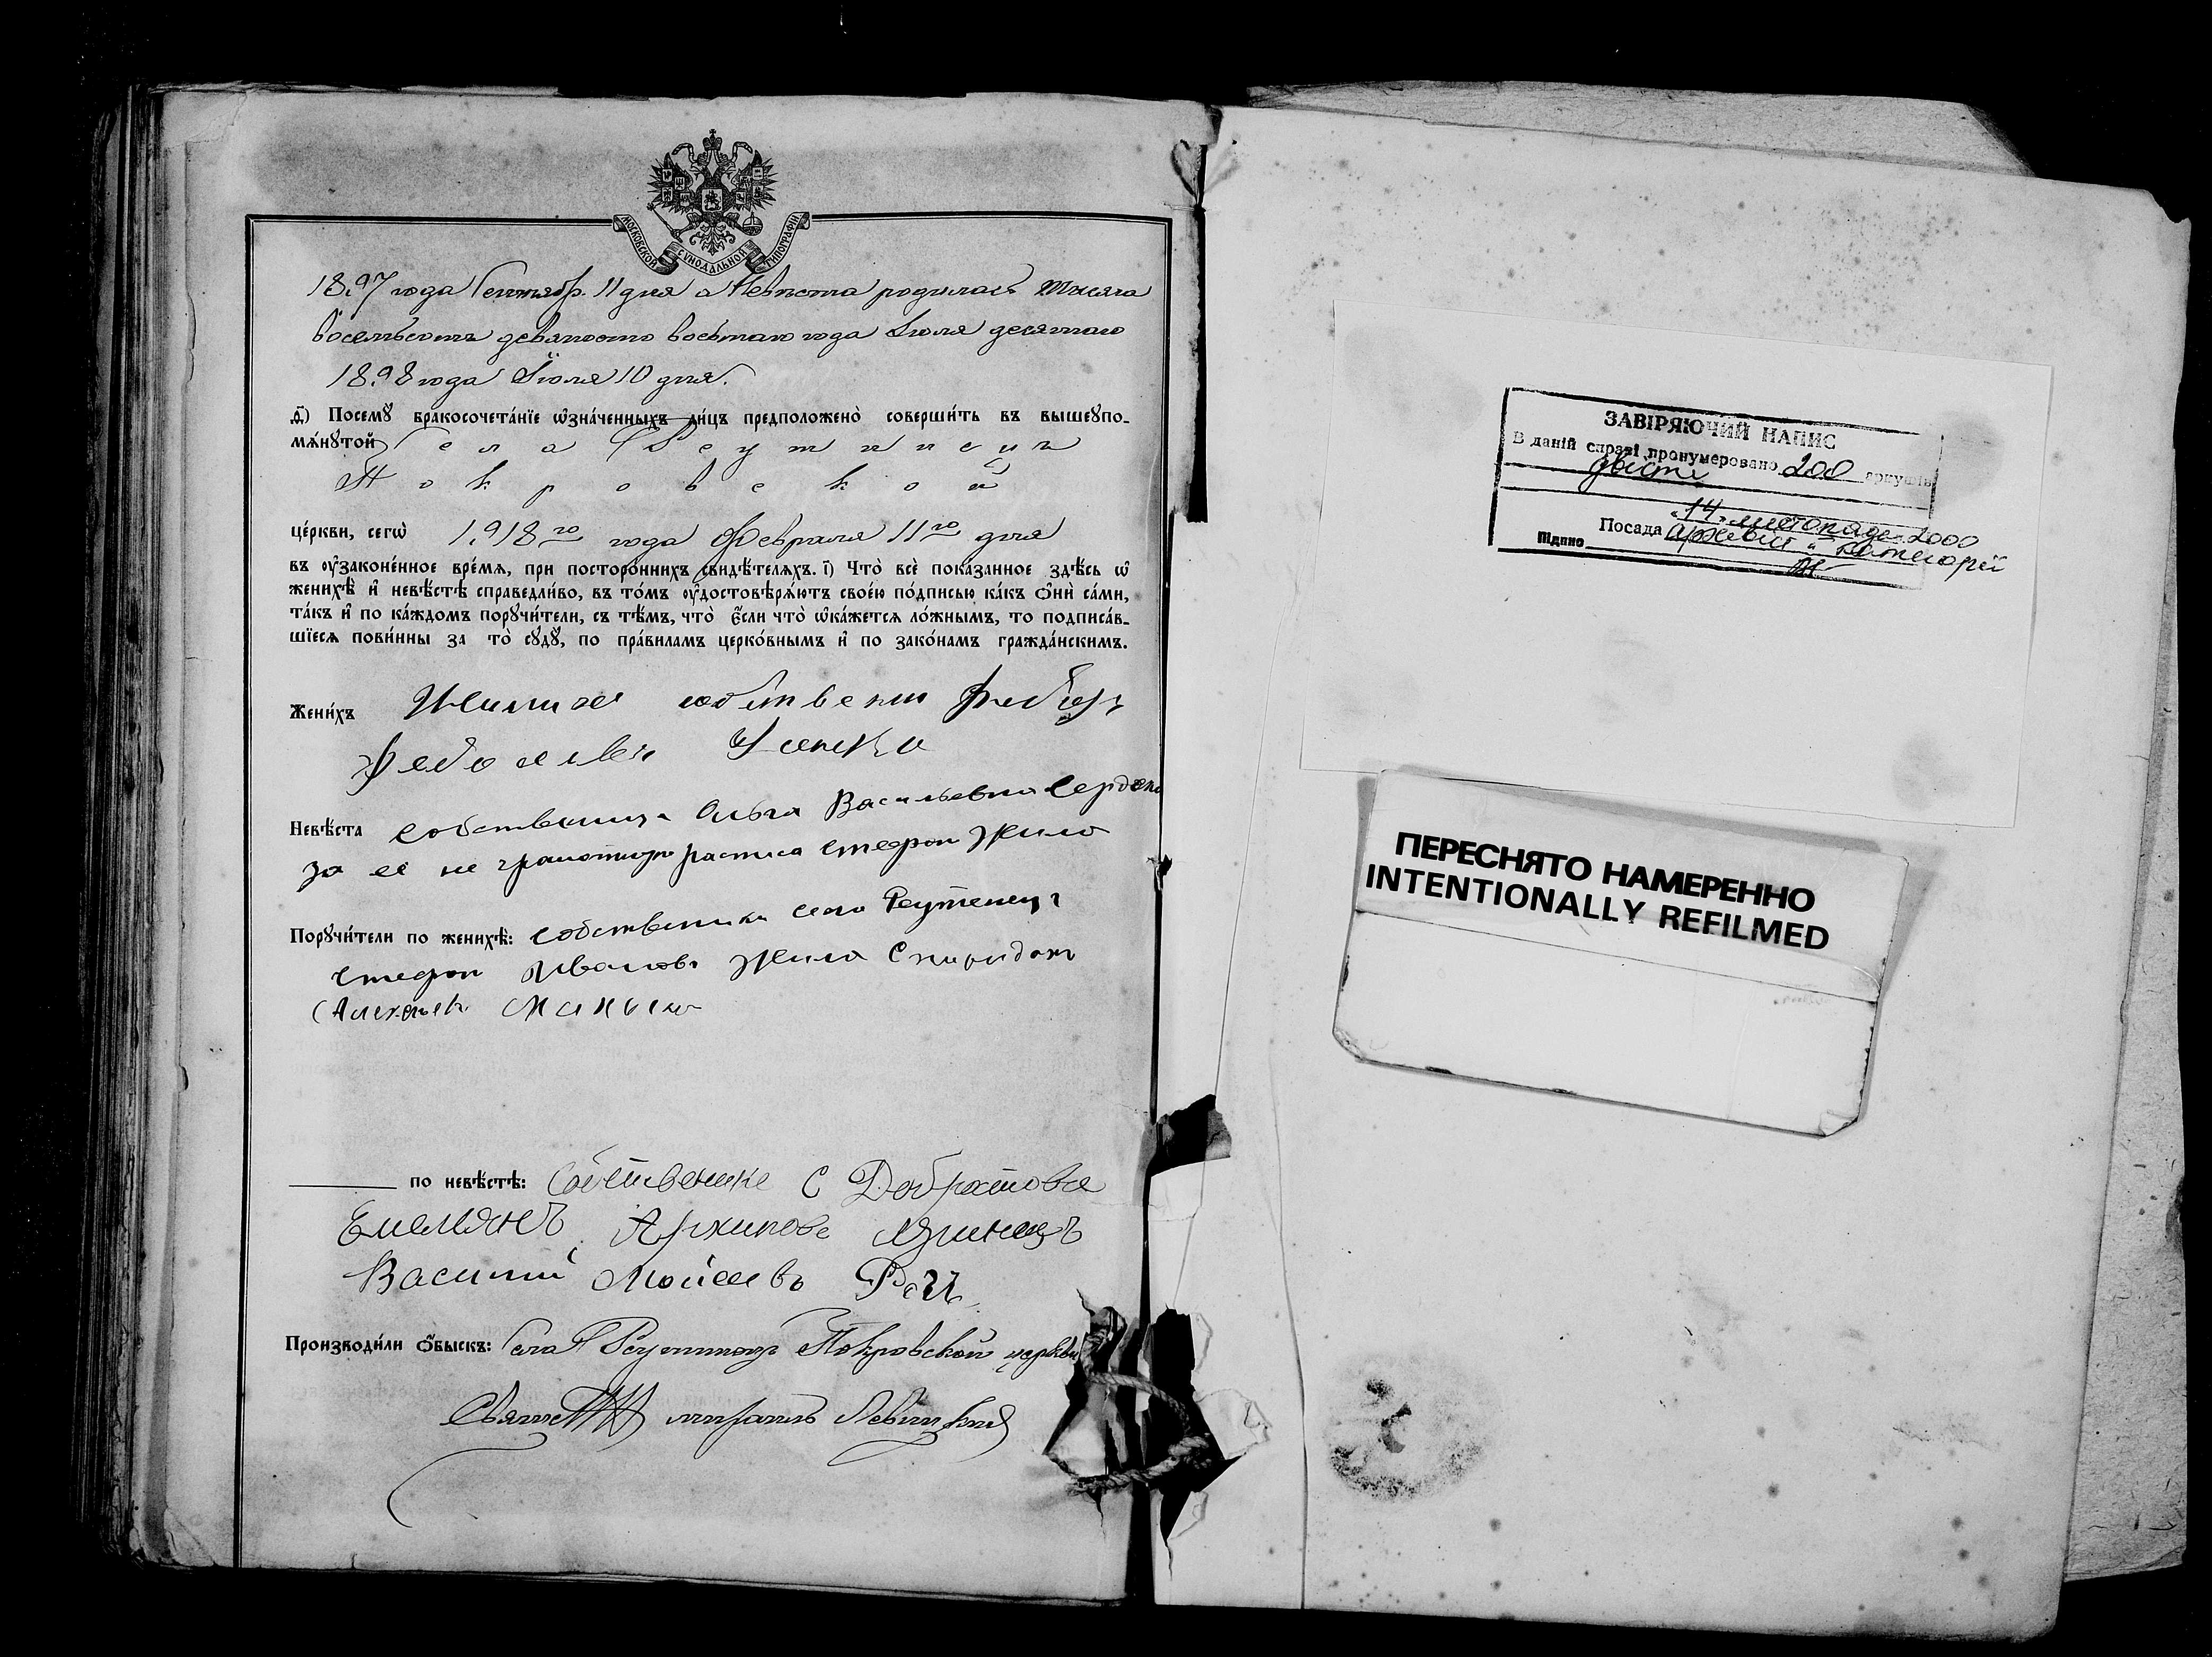 МОСКОВСКОЙ СУНОДАЛЬНОЙ ТИПОГРАФІИ
1897 года Сентябр. 11 дня а Невѣста родилась тысяча
восемьсотъ девяносто восьмаго года Іюля десятаго
1898 года Іюля 10 дня.
Посемꙋ бракосочета́нїе ѡ҆зна́ченныхъ ли́цъ предположено̀ соверши́ть въ вышеꙋпо-
мѧ́нꙋтой Села Реутинецъ
Покровской
це́ркви, сегѡ̀ 1918го года Февраля 11го дня
въ ᲂу҆законе́нное вре́мѧ, при посторо́ннихъ свидѣ́телѧхъ. і҃) Что̀ всѐ пока́занное здѣ́сь ѡ҆
женихѣ̀ и҆ невѣ́стѣ справедли́во, въ то́мъ ᲂу҆достовѣрѧ́ютъ свое́ю по́дписью ка́къ ѻ҆нѝ са́ми,
та́къ и҆ по ка́ждомъ порꙋчи́тели, съ тѣ́мъ, что̀ є҆́сли что̀ ѡ҆ка́жетсѧ ло́жнымъ, то подписа́в-
шїесѧ пови́нны за то̀ сꙋдꙋ̀, по пра́виламъ церко́внымъ и҆ по зако́намъ гражда́нскимъ.
Жени́хъ
Невѣ́ста собственица Ольга Васильевна
за ее не грамотную растиса Стефан Жила
Порꙋчи́тели по женихѣ̀: собственики села Реутенецъ
Стефан Иванов Жила Спиридон
по невѣ́стѣ: Собственике С Добратова
Емельянъ Архипове
Василий Мойсеевъ
Производи́ли ѻ҆́быскъ: Села Реутинецъ Покровской церкви
Левицкий
ЗАВІРЯЮЧИЙ НАПИС
В даній справі пронумеровано 200 аркушів
двісті
"14" листопада 2000
Посада архівіст II категорії
Підпис
ПЕРЕСНЯТО НАМЕРЕННО
INTENTIONALLY REFILMED